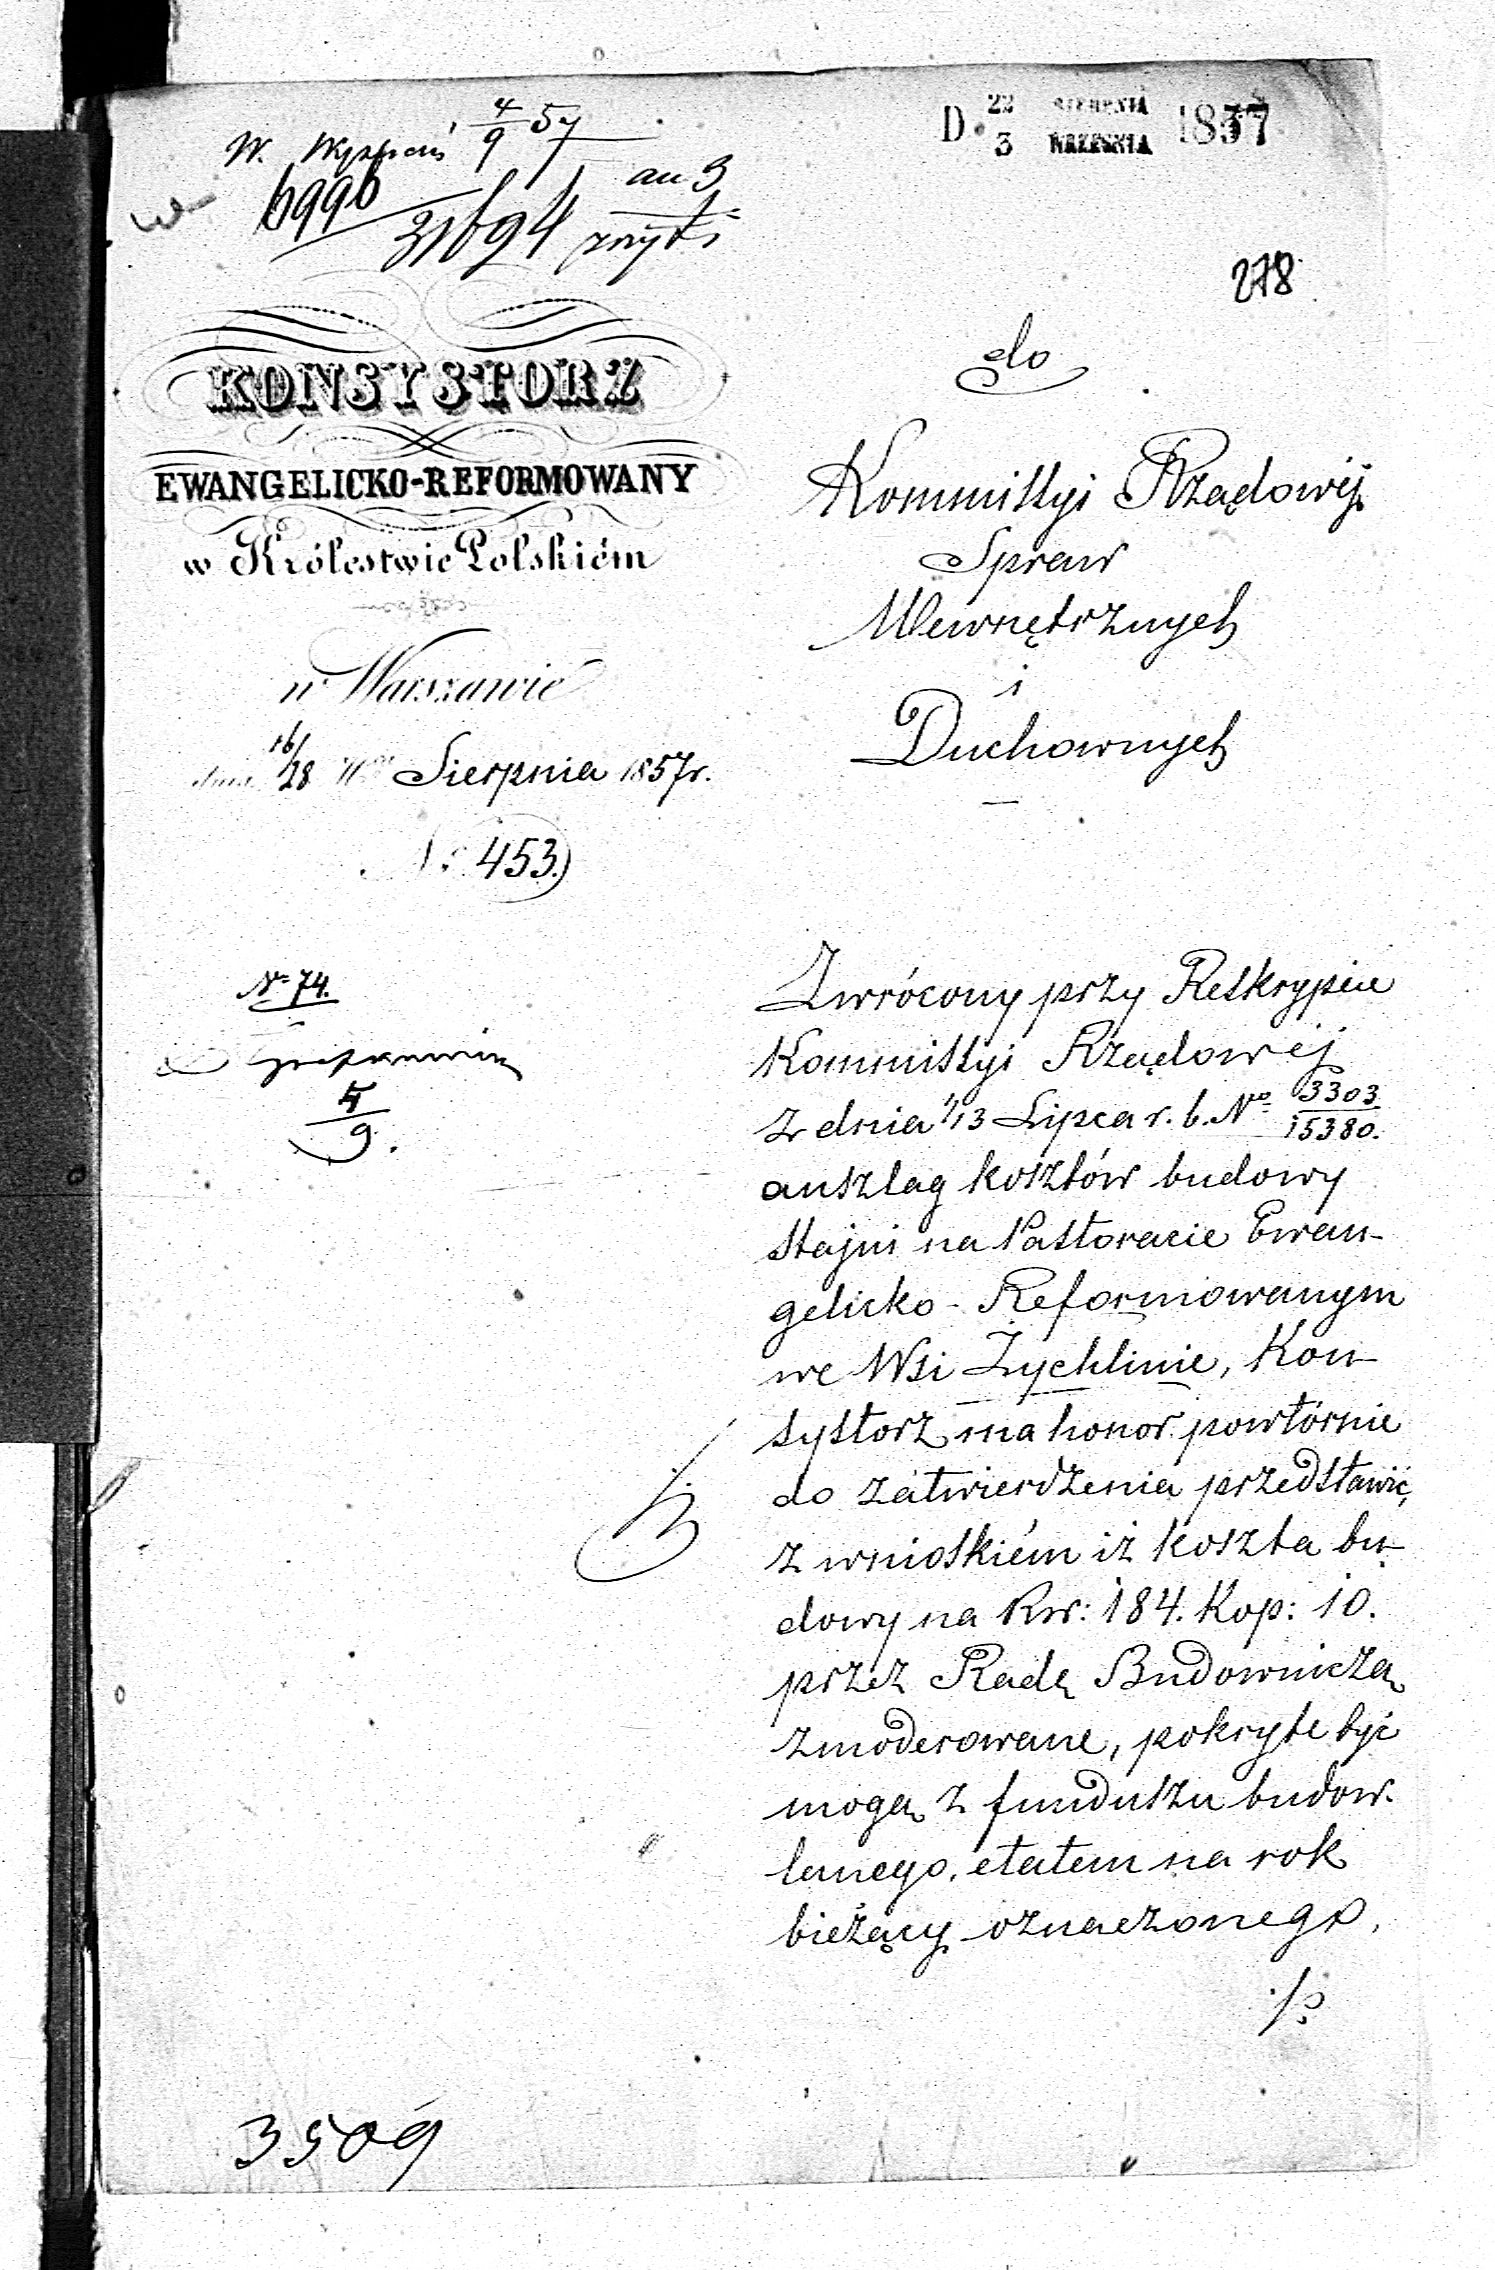 D. 22 SIERPNIA 1857
3 WRZEŚNIA
W. 4/9 57
6990
31694
278
KONSYSTORZ
EWANGELICKO-REFORMOWANY
w Królestwie Polskiém
w Warszawie
dnia 16/28 Sierpnia 1857r.
No 453.)
do
Kommissyi Rządowéj
Spraw
Wewnętrznych
i
Duchownych
No 74.
5/9.
Zwrócony przy Reskrypcie
Kommissyi Rządowéj
z dnia 1/13 Lipca r. b. No 3303/15380.
anszlag kosztów budowy
stajni na Pastoracie Ewan-
gelicko-Reformowanym
we Wsi Żychlinie, Kon-
systorz ma honor powtórnie
do zatwierdzenia przedstawić,
z wnioskiém iż koszta bu-
dowy na Rsr: 184. Kop: 10.
przez Radę Budowniczą
zmoderowane, pokryte być
mogą z funduszu budow-
lanego, etatem na rok
bieżący oznaczonego,
3509